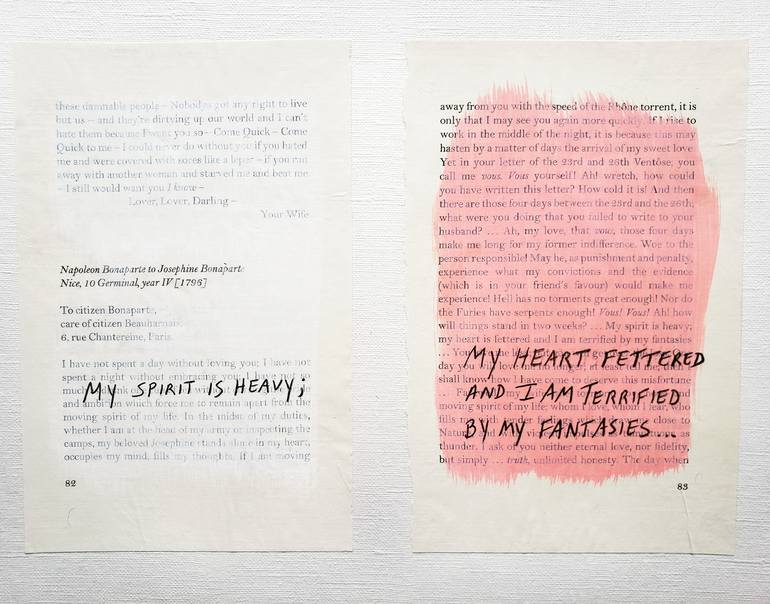 these damnable people – Nobodys got any right to live
but us – and they're dirtying up our world and I can't
hate them because I want you so – Come Quick – Come
Quick to me – I could never do without you if you hated
me and were covered with sores like a leper – if you ran
away with another woman and starved me and beat me
– I still would want you I know –
Lover, Lover, Darling –
Your Wife
Napoleon Bonaparte to Josephine Bonaparte
Nice, 10 Germinal, year IV [1796]
To citizen Bonaparte,
care of citizen Beauharnais,
6, rue Chantereine, Paris.
I have not spent a day without loving you; I have not
spent a night without embracing you; I have not so
much
MY SPIRIT IS HEAVY;
and ambition which force me to remain apart from the
moving spirit of my life. In the midst of my duties,
whether I am at the head of my army or inspecting the
camps, my beloved Josephine stands alone in my heart,
occupies my mind, fills my thoughts. If I am moving
82
away from you with the speed of the Rhône torrent, it is
only that I may see you again more quickly. If I rise to
work in the middle of the night, it is because this may
hasten by a matter of days the arrival of my sweet love
Yet in your letter of the 23rd and 26th Ventôse; you
call me vous. Vous yourself! Ah! wretch, how could
you have written this letter? How cold it is! And then
there are those four days between the 23rd and the 26th;
what were you doing that you failed to write to your
husband? ... Ah, my love, that vous, those four days
make me long for my former indifference. Woe to the
person responsible! May he, as punishment and penalty,
experience what my convictions and the evidence
(which is in your friend's favour) would make me
experience! Hell has no torments great enough! Nor do
the Furies have serpents enough! Vous! Vous! Ah! how
will things stand in two weeks? ... My spirit is heavy;
my heart is fettered and I am terrified by my fantasies
... You
MY HEART FETTERED
day you
shall know how I have come to deserve this misfortune
AND I AM TERRIFIED
moving spirit of my life, whom I love, whom I fear, who
fills
BY MY FANTASIES ...
thunder. I ask of you neither eternal love, nor fidelity,
but simply ... truth, unlimited honesty. The day when
83